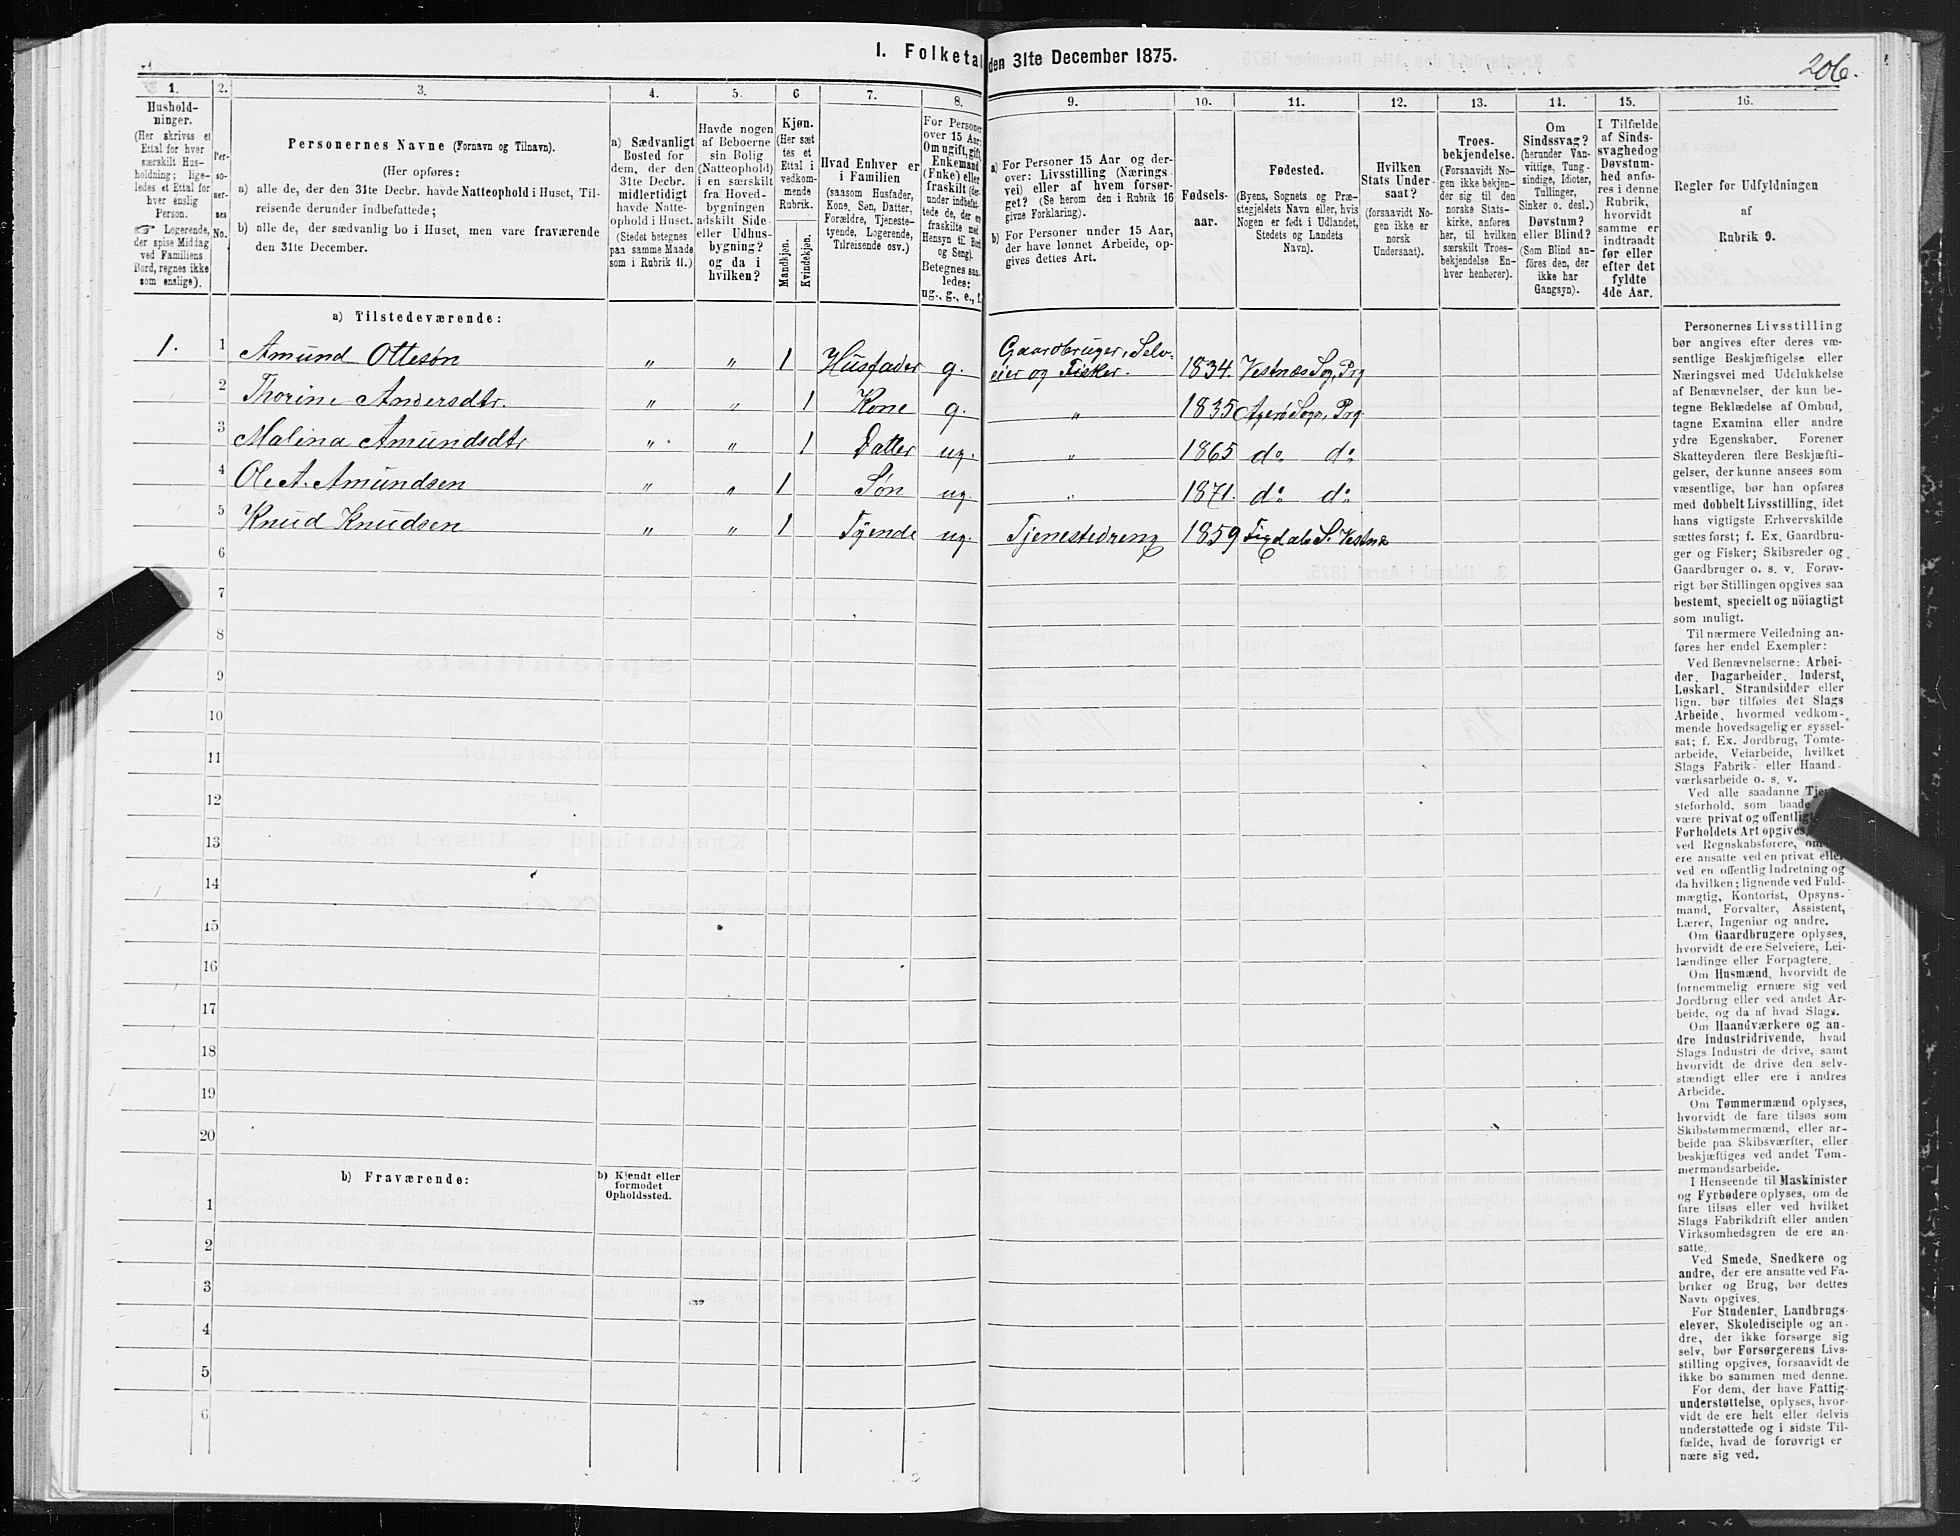 I. Folketal den 31te December 1875.
206.
1.
2.
3.
4.
5.
6
7.
8.
9.
10.
11.
12.
13.
14.
15.
16.
Hushold-
ninger.
(Her skrives et
Ettal for hver
særskilt Hus-
holdning; lige-
ledes et Ettal for
hver enslig
Person.
☞ Logerende,
der spise Middag
ved Familiens
Bord, regnes ikke
som enslige).
Per-
so-
ner-
nes
No.
Personernes Navne (Fornavn og Tilnavn).
(Her opføres:
a) alle de, der den 31te Decbr. havde Natteophold i Huset, Til-
reisende derunder indbefattede;
b) alle de, der sædvanlig bo i Huset, men vare fraværende
den 31te December.
a) Sædvanligt
Bosted for
dem, der den
31te Decbr.
midlertidigt
havde Natte-
ophold i Huset.
(Stedet betegnes
paa samme Maade
som i Rubrik 11.)
Havde nogen
af Beboerne
sin Bolig
(Natteophold)
i en særskilt
fra Hoved-
bygningen
adskilt Side-
eller Udhus-
bygning?
og da i
hvilken?
Kjøn.
(Her sæt
tes et
Ettal i
vedkom-
mende
Rubrik.
Mandkjøn.
Kvindekjøn.
Hvad Enhver er
i Familien
(saasom Husfader,
Kone, Søn, Datter,
Forældre, Tjeneste-
tyende, Logerende,
Tilreisende osv.)
For Personer
over 15 Aar:
Om ugift, gift,
Enkemand
(Enke) eller
fraskilt (der-
under indbefat-
tede de, der ere
fraskilte med
Hensyn til Bord
og Seng).
Betegnes saa-
ledes:
ug., g., e., f.
a) For Personer 15 Aar og der-
over: Livsstilling (Nærings
vei) eller af hvem forsør-
get? (Se herom den i Rubrik 16
givne Forklaring).
b) For Personer under 15 Aar,
der have lønnet Arbeide, op-
gives dettes Art.
Fødsels-
aar.
Fødested.
(Byens, Sognets og Præ-
stegjeldets Navn eller, hvis
Nogen er født i Udlandet,
Stedets og Landets
Navn).
Hvilken
Stats Under-
saat?
(forsaavidt No-
gen ikke er
norsk
Undersaat).
Troes-
bekjendelse.
(Forsaavidt No-
gen ikke bekjen-
der sig til den
norske Stats-
kirke, anføres
her, til hvilken
særskilt Troes-
bekjendelse En-
hver henhører).
Om
Sindssvag?
(herunder Van-
vittige, Tung-
sindige, Idioter,
Tullinger,
Sinker o. desl.)
Døvstum?
eller Blind?
(Som Blind an-
føres den, der
ikke har
Gangsyn).
I Tilfælde
af Sinds-
svaghed og
Døvstum-
hed anfø-
res i denne
Rubrik,
hvorvidt
samme er
indtraadt
før eller
efter det
fyldte
4de Aar.
Regler for Udfyldningen
af
Rubrik 9.
a) Tilstedeværende:
1. 1 Amund Ottesøn " " 1 Husfader g. Gaardbruger, Selv-
eier og Fisker. 1834. Vestnæs Sog, Prg
2 Thorine Andersdtr. " " 1 Kone g. " 1835 Agerø Sogn, Prg
3 Malina Amundsdtr " " 1 Datter ug. " 1865 do do
4 Ole A. Amundsen " " 1 Søn ug. " 1871. do do
5 Knud Knudsen " " 1 Tyende ug. Tjenestedreng 1859 S. Vestnæ
6
7
8
9
10
11
12
13
14
15
16
17
18
19
20
b) Fraværende:
b) Kjendt eller
formodet
Opholdssted.
1
2
3
4
5
6
Personernes Livsstilling
bør angives efter deres væ-
sentlige Beskjæftigelse eller
Næringsvei med Udelukkelse
af Benævnelser, der kun be-
tegne Beklædelse af Ombud,
tagne Examina eller andre
ydre Egenskaber. Forener
Skatteyderen flere Beskjæfti-
gelser, der kunne ansees som
væsentlige, bør han opføres
med dobbelt Livsstilling, idet
hans vigtigste Erhvervskilde
sættes først; f. Ex. Gaardbru-
ger og Fisker; Skibsreder og
Gaardbruger o. s. v. Forøv-
rigt bør Stillingen opgives saa
bestemt, specielt og nöiagtigt
som muligt.
Til nærmere Veiledning an-
føres her endel Exempler:
Ved Benævnelserne: Arbei-
der, Dagarbeider, Inderst,
Løskarl, Strandsidder eller
lign. bør tilføies det Slags
Arbeide, hvormed vedkom-
mende hovedsagelig er syssel-
sat; f. Ex. Jordbrug, Tomte-
arbeide, Veiarbeide, hvilket
Slags Fabrik- eller Haand-
værksarbeide o. s. v.
Ved alle saadanne
steforhold, som baade
være privat og offentligt
Forholdets Art opgives,
ved Regnskabsførere,
ere ansatte ved en privat eller
ved en offentlig Indretning og
da hvilken; lignende ved Fuld-
mægtig, Kontorist, Opsyns-
mand, Forvalter, Assistent,
Lærer, Ingeniør og andre.
Om Gaardbrugere oplyses,
hvorvidt de ere Selveiere, Lei-
lændinge eller Forpagtere.
Om Husmænd, hvorvidt de
fornemmelig ernære sig ved
Jordbrug eller ved andet Ar-
beide, og da af hvad Slags.
Om Haandværkere og an-
dre Industridrivende, hvad
Slags Industri de drive, samt
hvorvidt de drive den selv-
stændigt eller ere i andres
Arbeide.
Om Tømmermænd oplyses,
hvorvidt de fare tilsøs som
Skibstømmermænd, eller ar-
beide paa Skibsværfter, eller
beskjæftiges ved andet Tøm-
mermandsarbeide.
I Henseende til Maskinister
og Fyrbødere oplyses, om de
fare tilsøs eller ved hvilket
Slags Fabrikdrift eller anden
Virksomhedsgren de ere an-
satte.
Ved Smede, Snedkere og
andre, der ere ansatte ved Fa-
briker og Brug, bør dettes
Navn opgives.
For Studenter, Landbrugs-
elever, Skoledisciple og an-
dre, der ikke forsørge sig
selv, bør Forsørgerens Livs-
stilling opgives, forsaavidt de
ikke bo sammen med denne.
For dem, der have Fattig-
understøttelse, oplyses, hvor-
vidt de ere helt eller delvis
understøttede og i sidste Til-
fælde, hvad de forøvrigt er
nære sig ved.